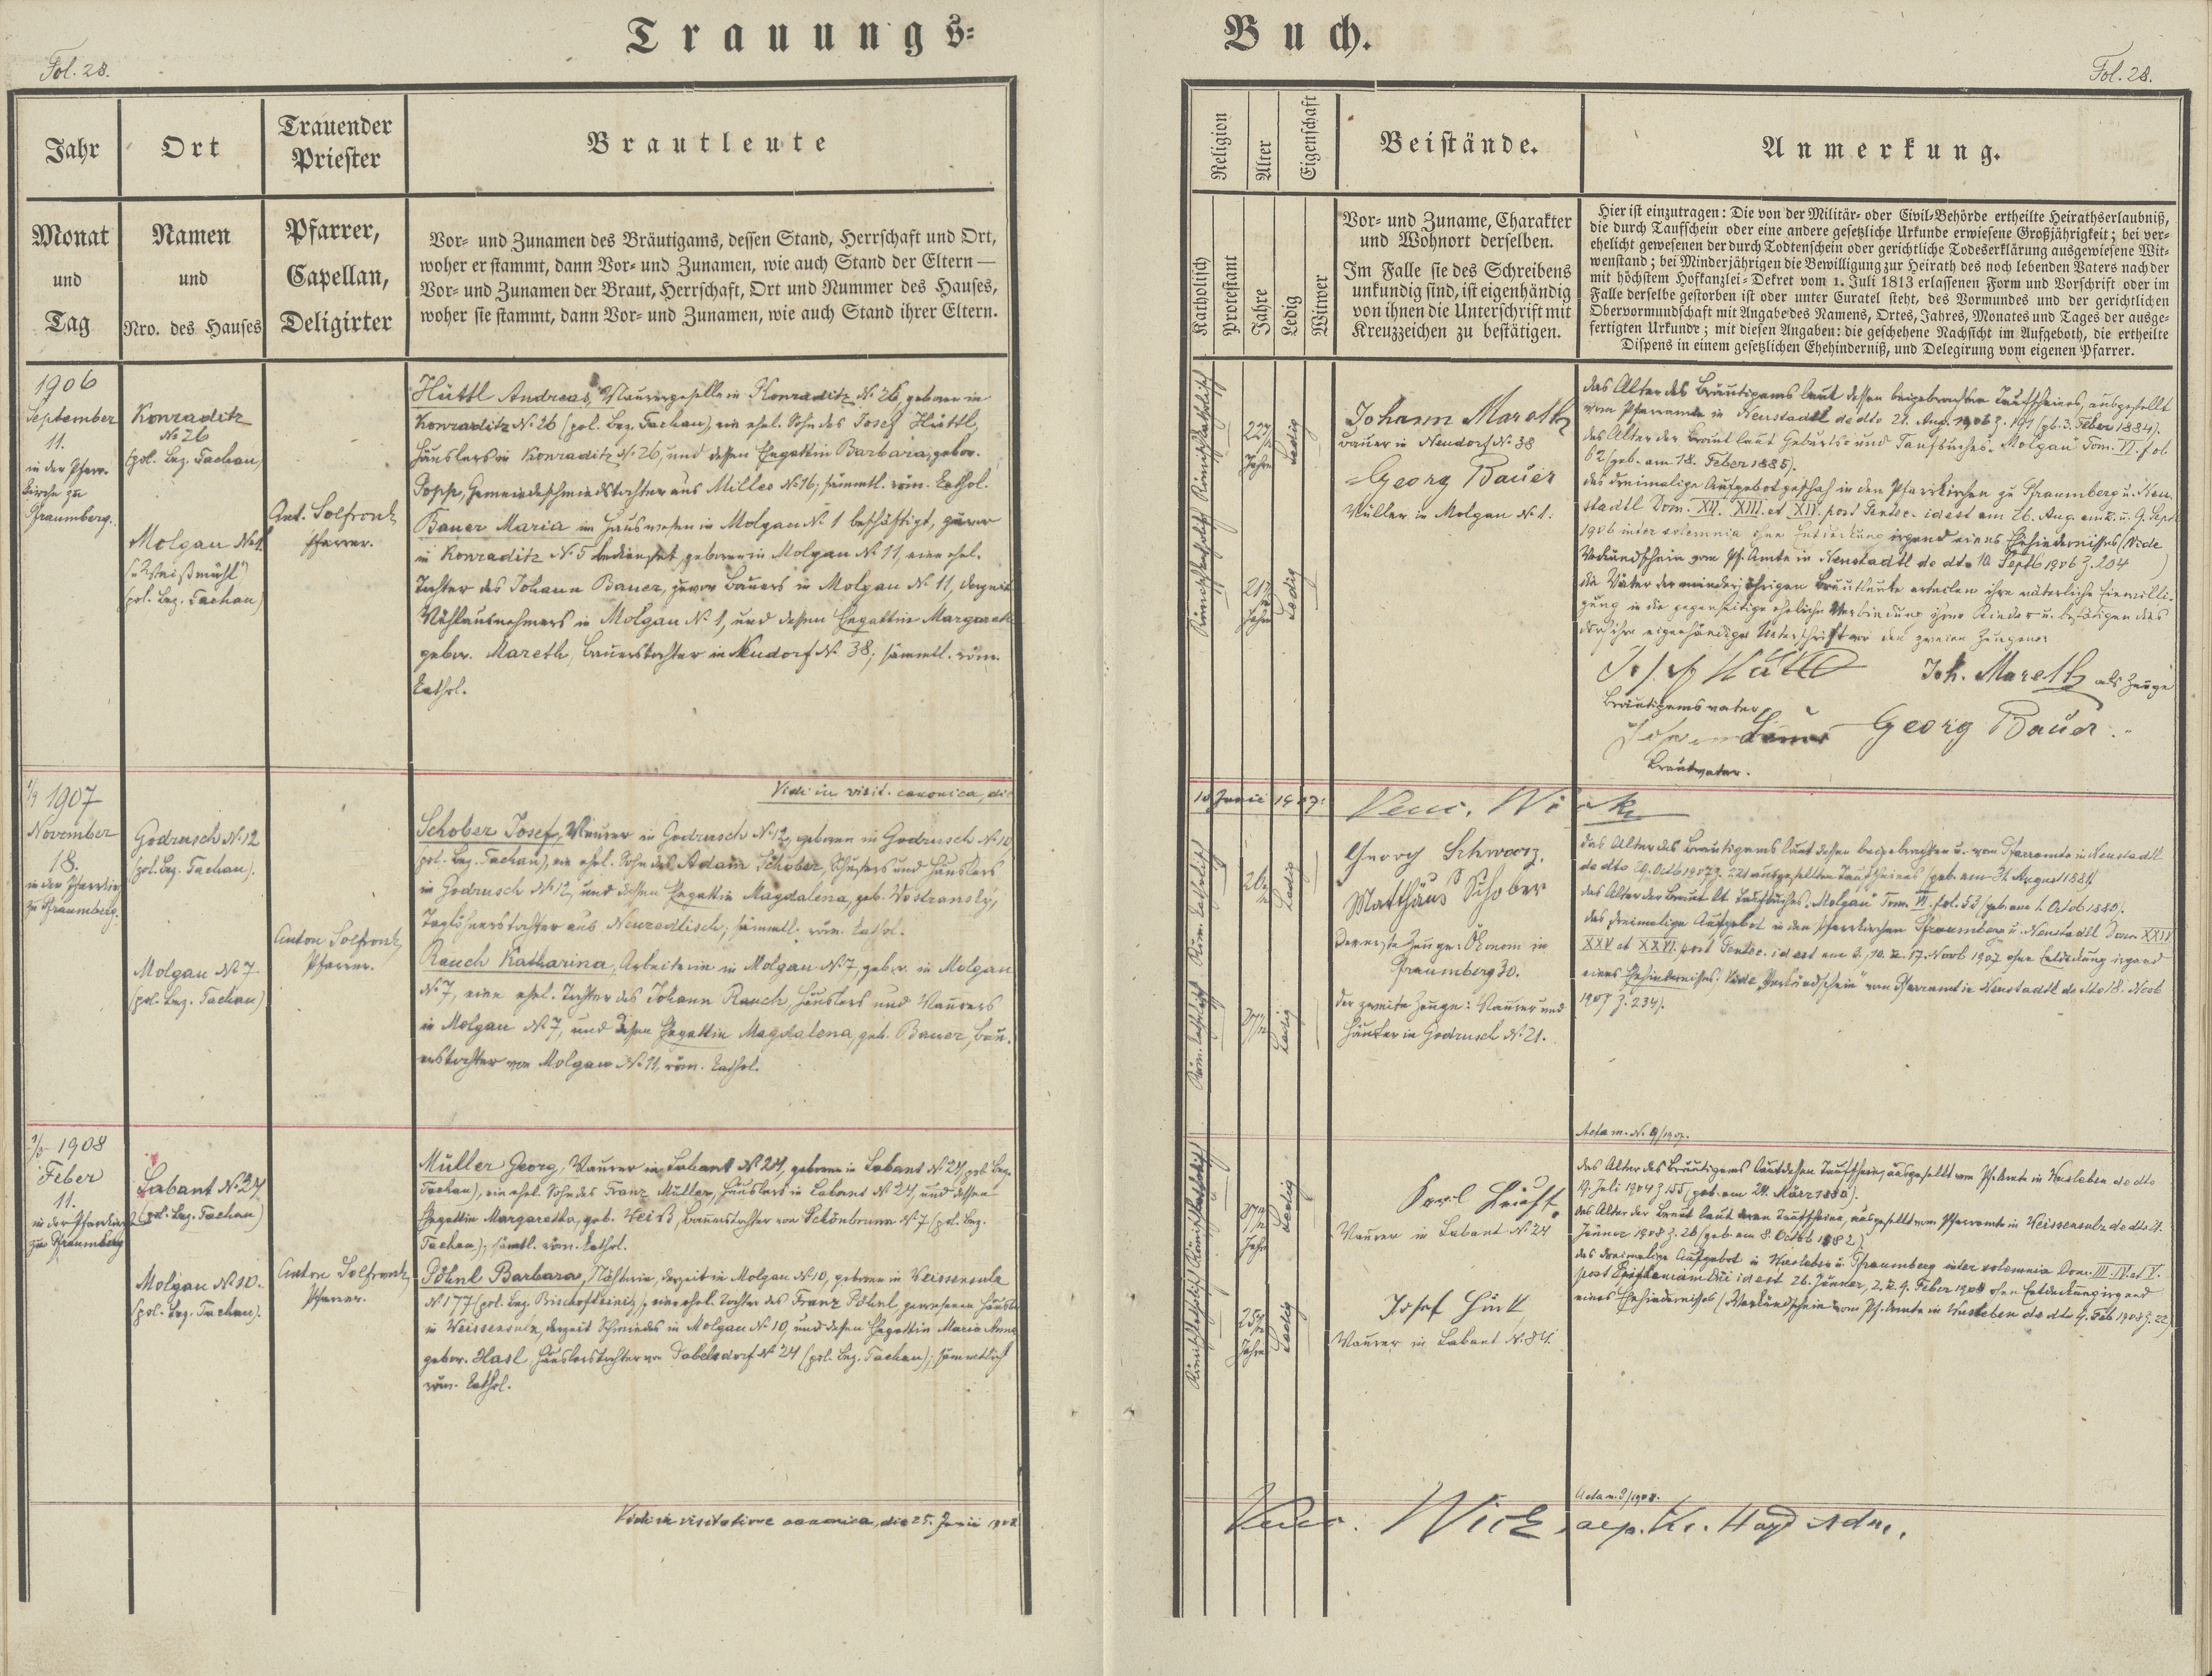 Trauungs-
Buch.
Fol. 28.
Fol. 28.
Jahr
Ort
Trauender
Priester
Brautleute
Monat
und
Tag
Namen
und
Nro. des Hauses
Pfarrer,
Capellan,
Deligirter
Vor- und Zunamen des Bräutigams, dessen Stand, Herrschaft und Ort,
woher er stammt, dann Vor- und Zunamen, wie auch Stand der Eltern —
Vor- und Zunamen der Braut, Herrschaft, Ort und Nummer des Hauses,
woher sie stammt, dann Vor- und Zunamen, wie auch Stand ihrer Eltern.
Religion
Alter
Eigenschaft
Beistände.
Anmerkung.
Katholisch
Protestant
Jahre
Ledig
Witwer
Vor- und Zuname, Charakter
und Wohnort derselben.
Im Falle sie des Schreibens
unkundig sind, ist eigenhändig
von ihnen die Unterschrift mit
Kreuzzeichen zu bestätigen.
Hier ist einzutragen: Die von der Militär- oder Civil-Behörde ertheilte Heirathserlaubniß,
die durch Taufschein oder eine andere gesetzliche Urkunde erwiesene Großjährigkeit; bei ver-
ehelicht gewesenen der durch Todtenschein oder gerichtliche Todeserklärung ausgewiesene Wit-
wenstand; bei Minderjährigen die Bewilligung zur Heirath des noch lebenden Vaters nach der
mit höchstem Hofkanzlei-Dekret vom 1. Juli 1813 erlassenen Form und Vorschrift oder im
Falle derselbe gestorben ist oder unter Curatel steht, des Vormundes und der gerichtlichen
Obervormundschaft mit Angabe des Namens, Ortes, Jahres, Monates und Tages der ausge-
fertigten Urkunde; mit diesen Angaben: die geschehene Nachsicht im Aufgeboth, die ertheilte
Dispens in einem gesetzlichen Ehehinderniß, und Delegirung vom eigenen Pfarrer.
1906
September
11.
in der Pfarr-
kirche zu
Pfraumberg.
Konraditz
No 26
(pol. Bez. Tachau)
Molgau No 1.
("Weißmühl")
(pol. Bez. Tachau)
Ant. Solfronk
Pfarrer.
Hüttl Andreas, Maurergeselle in Konraditz No 26, geboren in
Konraditz No 26 (pol. Bez. Tachau), ein ehel. Sohn des Josef Hüttl,
Häuslers in Konraditz No 26, und dessen Ehegattin Barbara, gebor.
Popp, Gemeindeschmiedstochter aus Milles No 16; sämmtl. röm. kathol.
Bauer Maria im Hauswesen in Molgau No 1 beschäftigt, zuvor
in Konraditz No 5 bedienstet, geboren in Molgau No 11, eine ehel.
Tochter des Johann Bauer, zuvor Bauers in Molgau No 11, derzeit
Mühlausnehmers in Molgau No 1, und dessen Ehegattin Margareth
gebor. Mareth, Bauerstochter in Neudorf No 38; sämmtl. röm.
kathol.
Römischkatholisch
Römischkatholisch
22 7/12
Jahre
21 7/12
Jahre
Ledig
Ledig
Johann Mareth
Bauer in Neudorf No 38
Georg Bauer
Müller in Molgau No 1.
das Alter des Bräutigams laut dessen beigebrachten Taufscheines, ausgestellt
vom Pfarramte in Neustadtl de dto 21. Aug. 1906 Z. 191 (gb. 3. Feber 1884).
das Alter der Braut laut Geburts- und Taufbuches "Molgau" Tom. VI. fol.
62 (geb. am 18. Feber 1885).
das dreimalige Aufgebot geschah in den Pfarrkirchen zu Pfraumberg u. Neu-
stadtl Dom. XII. XIII. et XIV. post Pentec. id est am 26. Aug. am 2. u. 9. Sept.
1906 inter solemnia ohne Entdeckung irgend eines Ehehindernisses (Vide
Verkündschein vom Pf. Amte in Neustadtl de dto 10. Septb 1906 Z. 204)
die Väter der minderjährigen Brautleute erteilen ihre väterliche Einwilli-
gung in die gegenseitige eheliche Verbindung ihrer Kinder u. bestätigen dies
durch ihre eigenhändige Unterschrift vor den zweien Zeugen:
Josef Hüttl
Joh. Mareth als Zeuge
Bräutigamsvater
Johann Bauer
Georg Bauer.
Brautvater.
Vidi in visit. canonica, die
10 Junii 1907:
1907
November
18.
in der Pfarrkirche
zu Pfraumberg.
Godrusch No 12
(pol. Bez. Tachau).
Molgau No 7
(pol. Bez. Tachau)
Anton Solfronk
Pfarrer.
Schober Josef, Maurer in Godrusch No 12, geboren in Godrusch No 10
(pol. Bez. Tachau), ein ehel. Sohn des Adam Schober, Schusters und Häuslers
in Godrusch No 12, und dessen Ehegattin Magdalena, geb. Wostransky,
Taglöhnerstochter aus Neuzedlisch; sämmtl. röm. kathol.
Rauch Katharina, Arbeiterin in Molgau No 7, gebor. in Molgau
No 7, eine ehel. Tochter des Johann Rauch, Häuslers und Maurers
in Molgau No 7, und dessen Ehegattin Magdalena, geb. Bauer, Bau-
erstochter von Molgau No 11, röm. kathol.
Röm. katholisch
Röm. katholisch
Ledig
Ledig
Georg Schwarz.
Matthäus Schober
Der erste Zeuge: Ökonom in
Pfraumberg 30.
der zweite Zeuge: Maurer und
Häusler in Godrusch No 21.
das Alter des Bräutigams laut dessen beigebrachten u. vom Pfarramte in Neustadtl
de dto 29. Octb 1907 Z. 221 ausgestellten Taufscheines (geb. am 31. August 1881)
das Alter der Braut lt. Taufbuches "Molgau" Tom. VI. fol. 52 (geb. am 1. Octob 1880).
das dreimalige Aufgebot in den Pfarrkirchen Pfraumberg u. Neustadtl Dom. XXIV
XXV et XXVI. post Pentec. id est am 3., 10. u. 17. Novb 1907 ohne Entdeckung irgend
eines Ehehindernisses. Vide "Verkündschein" vom Pfarramt in Neustadtl de dto 18. Novb
1907 Z. 234).
1908
Feber
11.
in der Pfarrkirche
zu Pfraumberg
Labant No 24
(pol. Bez. Tachau)
Molgau No 10.
(pol. Bez. Tachau).
Anton Solfronk,
Pfarrer.
Müller Georg, Maurer in Labant No 24, geboren in Labant No 24 (pol. Bez.
Tachau), ein ehel. Sohn des Franz Müller, Häuslers in Labant No 24, und dessen
Ehegattin Margaretha, geb. Weiß, Bauerstochter von Schönbrunn No 7 (pol. Bez.
Tachau); sämtl. röm. kathol.
Pöhnl Barbara, Näherin, derzeit in Molgau No 10, geboren in Weissensulz
No 177 (pol. Bez. Bischofteinitz), eine ehel. Tochter des Franz Pöhnl, gewesenen Häuslers
in Weissensulz, derzeit Schmiedes in Molgau No 10, und dessen Ehegattin Maria Anna
gebor. Hasl, Häuslerstochter von Gobelsdorf No 24 (pol. Bez. Tachau); sämmtlich
röm. kathol.
Römischkatholisch
Römischkatholisch
Jahre
Jahre
Ledig
Ledig
Maurer in Labant No 24
Josef
Maurer in Labant No 84.
Acta m. No 9/1907.
das Alter des Bräutigams laut dessen Taufschein, ausgestellt vom Pf. Amte in Hesleben de dto
19. Juli 1904 Z 155 (geb. am 24. März 1880).
das Alter der Braut laut deren Taufscheine, ausgestellt vom Pfarramte in Weissensulz de dto 21.
Jänner 1908 Z. 26 (geb. am 8. Octob 1882)
das dreimalige Aufgebot in Hesleben u. Pfraumberg inter solemnia Dom. III. IV. et V.
post Epiphaniam Dni id est 26. Jänner, 2. u. 9. Feber 1908 ohne Entdeckung irgend
eines Ehehindernisses (Verkündschein vom Pf. Amte in Hesleben de dto 9. Feb 1908 Z. 22)
Acta m. 2/1908.
Vidi in visitatione canonica, die 25. Junii 1908